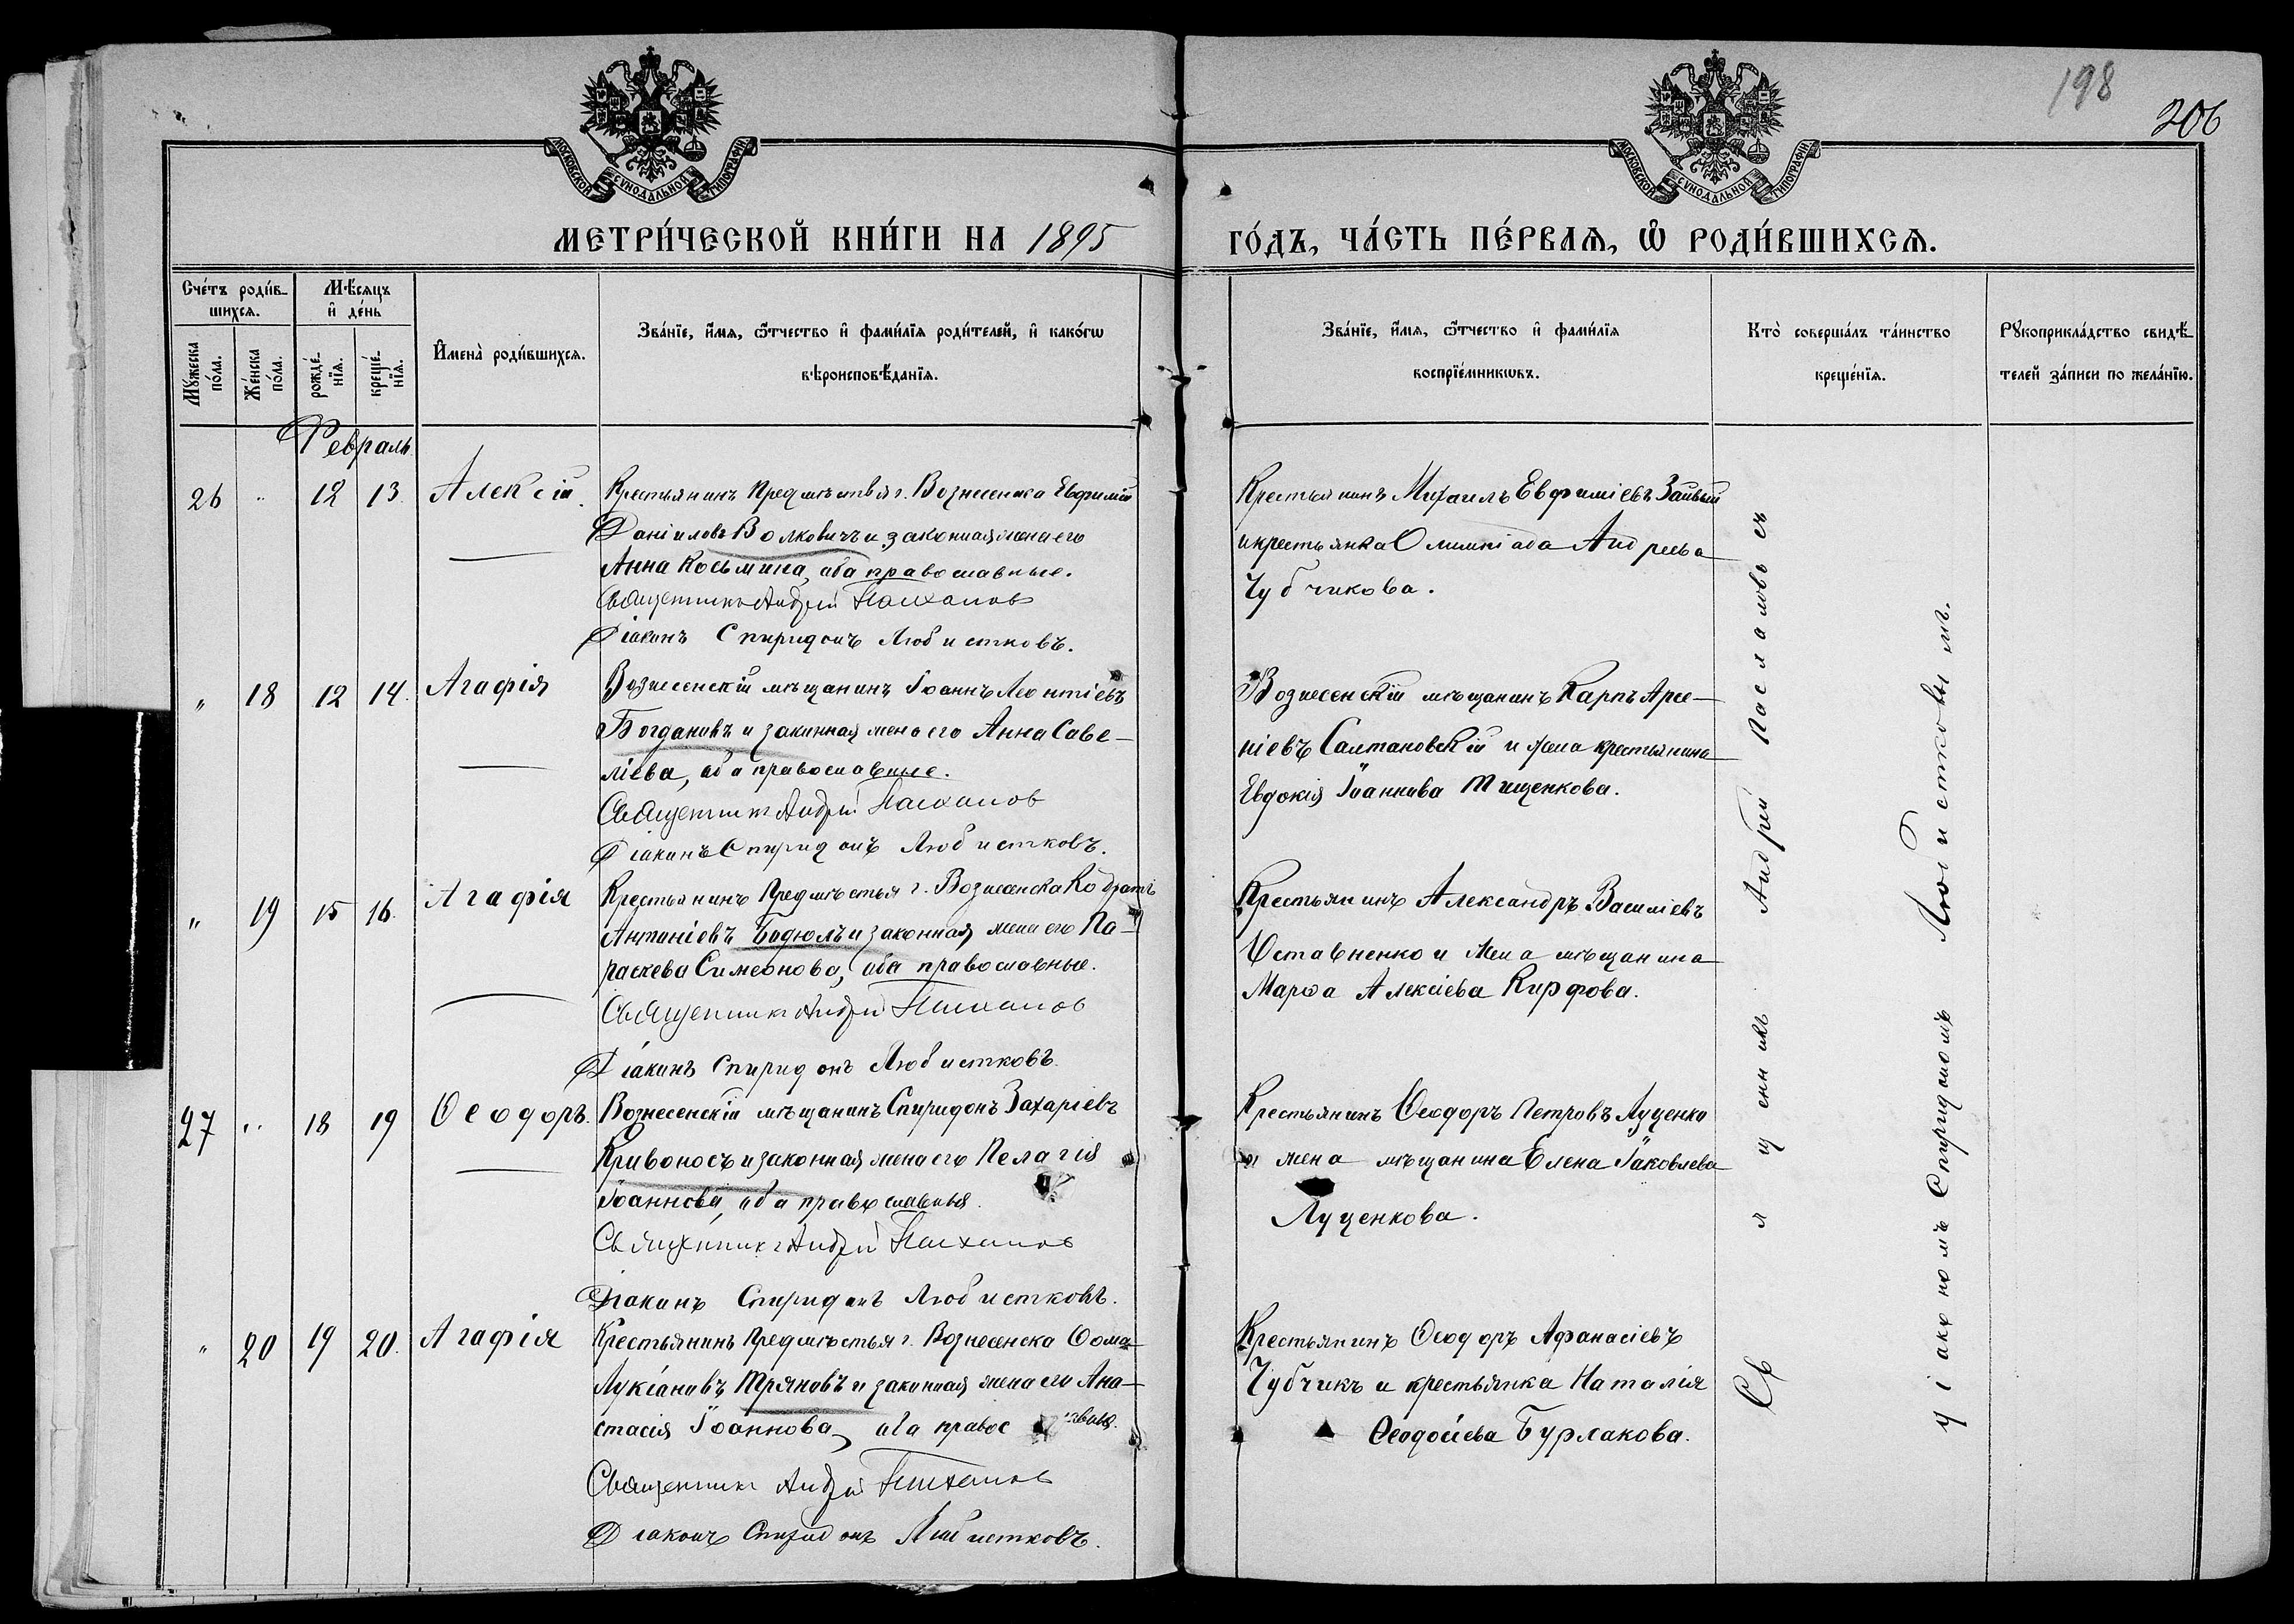 198
206
МОСКОВСКОЙ СѴНОДАЛЬНОЙ ТИПОГРАФІИ
МОСКОВСКОЙ СѴНОДАЛЬНОЙ ТИПОГРАФІИ
МЕТРИ́ЧЕСКОЙ КНИ́ГИ НА 1895
ГО́ДЪ, ЧА́СТЬ ПЕ́РВАѦ, Ѡ҆ РОДИ́ВШИХСѦ.
Сче́тъ роди́в-
шихсѧ.
Мꙋ́жеска
по́ла.
Же́нска
по́ла.
Мѣ́сѧцъ
и҆ де́нь
рожде́-
нїѧ.
креще́-
нїѧ.
И҆мена̀ роди́вшихсѧ.
Зва́нїе, и҆́мѧ, ѻ҆́тчество и҆ фами́лїѧ роди́телей, и҆ како́гѡ
вѣроисповѣ́данїѧ.
Зва́нїе, и҆́мѧ, ѻ҆́тчество и҆ фами́лїѧ
воспрїе́мникѡвъ.
Кто̀ соверша́лъ та́инство
креще́нїѧ.
Рꙋкоприкла́дство свидѣ́-
телей за́писи по жела́нїю.
Февраль
26 " 12 13. Алексій.
Крестьянинъ Предмѣстья г. Вознесенска Евфимій
Даніиловъ Волковичъ и законная жена его
Анна Косьмина, оба православные.
Священникъ Андрей
Діаконъ Спиридонъ Любистковъ.
Крестьянинъ Михаилъ Евфиміевъ
и крестьянка Олимпіада Андреева
Чубчикова.
" 18 12 14. Агафія
Вознесенскій мѣщанинъ Іоаннъ Леонтіевъ
Богдановъ и законная жена его Анна Саве-
ліева, оба православные.
Священникъ Андрей
Діаконъ Спиридонъ Любистковъ.
Вознесенскій мѣщанинъ Карпъ Арсе-
ніевъ Салтановскій и жена крестьянина
Евдокія Іоаннова Тищенкова.
" 19 15 16. Агафія
Крестьянинъ Предмѣстья г. Вознесенска Кодратъ
Антоніевъ Бодюлъ и законная жена его Па-
раскева Симеонова, оба православные.
Священникъ Андрей
Діаконъ Спиридонъ Любистковъ.
Крестьянинъ Александръ Василіевъ
Оставненко и жена мѣщанина
Марѳа Алексіева Кирфова.
27 " 18 19 Ѳеодоръ.
Вознесенскій мѣщанинъ Спиридонъ Захаріевъ
Кривоносъ и законная жена его Пелагія
Іоаннова, оба православныя.
Священникъ Андрей
Діаконъ Спиридонъ Любистковъ.
Крестьянинъ Ѳеодоръ Петровъ Луценко
и жена мѣщанина Елена Іаковлева
Луценкова.
" 20 19 20. Агафія
Крестьянинъ Предмѣстья г. Вознесенска Ѳома
Лукіановъ Тряновъ и законная жена его Ана-
стасія Іоаннова, оба правос
Священникъ Андрей
Діаконъ Спиридонъ Любистковъ.
Крестьянинъ Ѳеодоръ Афанасіевъ
Чубчикъ и крестьянка Наталія
Ѳеодосіева Бурлакова.
Священникъ Андрей съ
діакономъ Спиридономъ Любистковымъ.